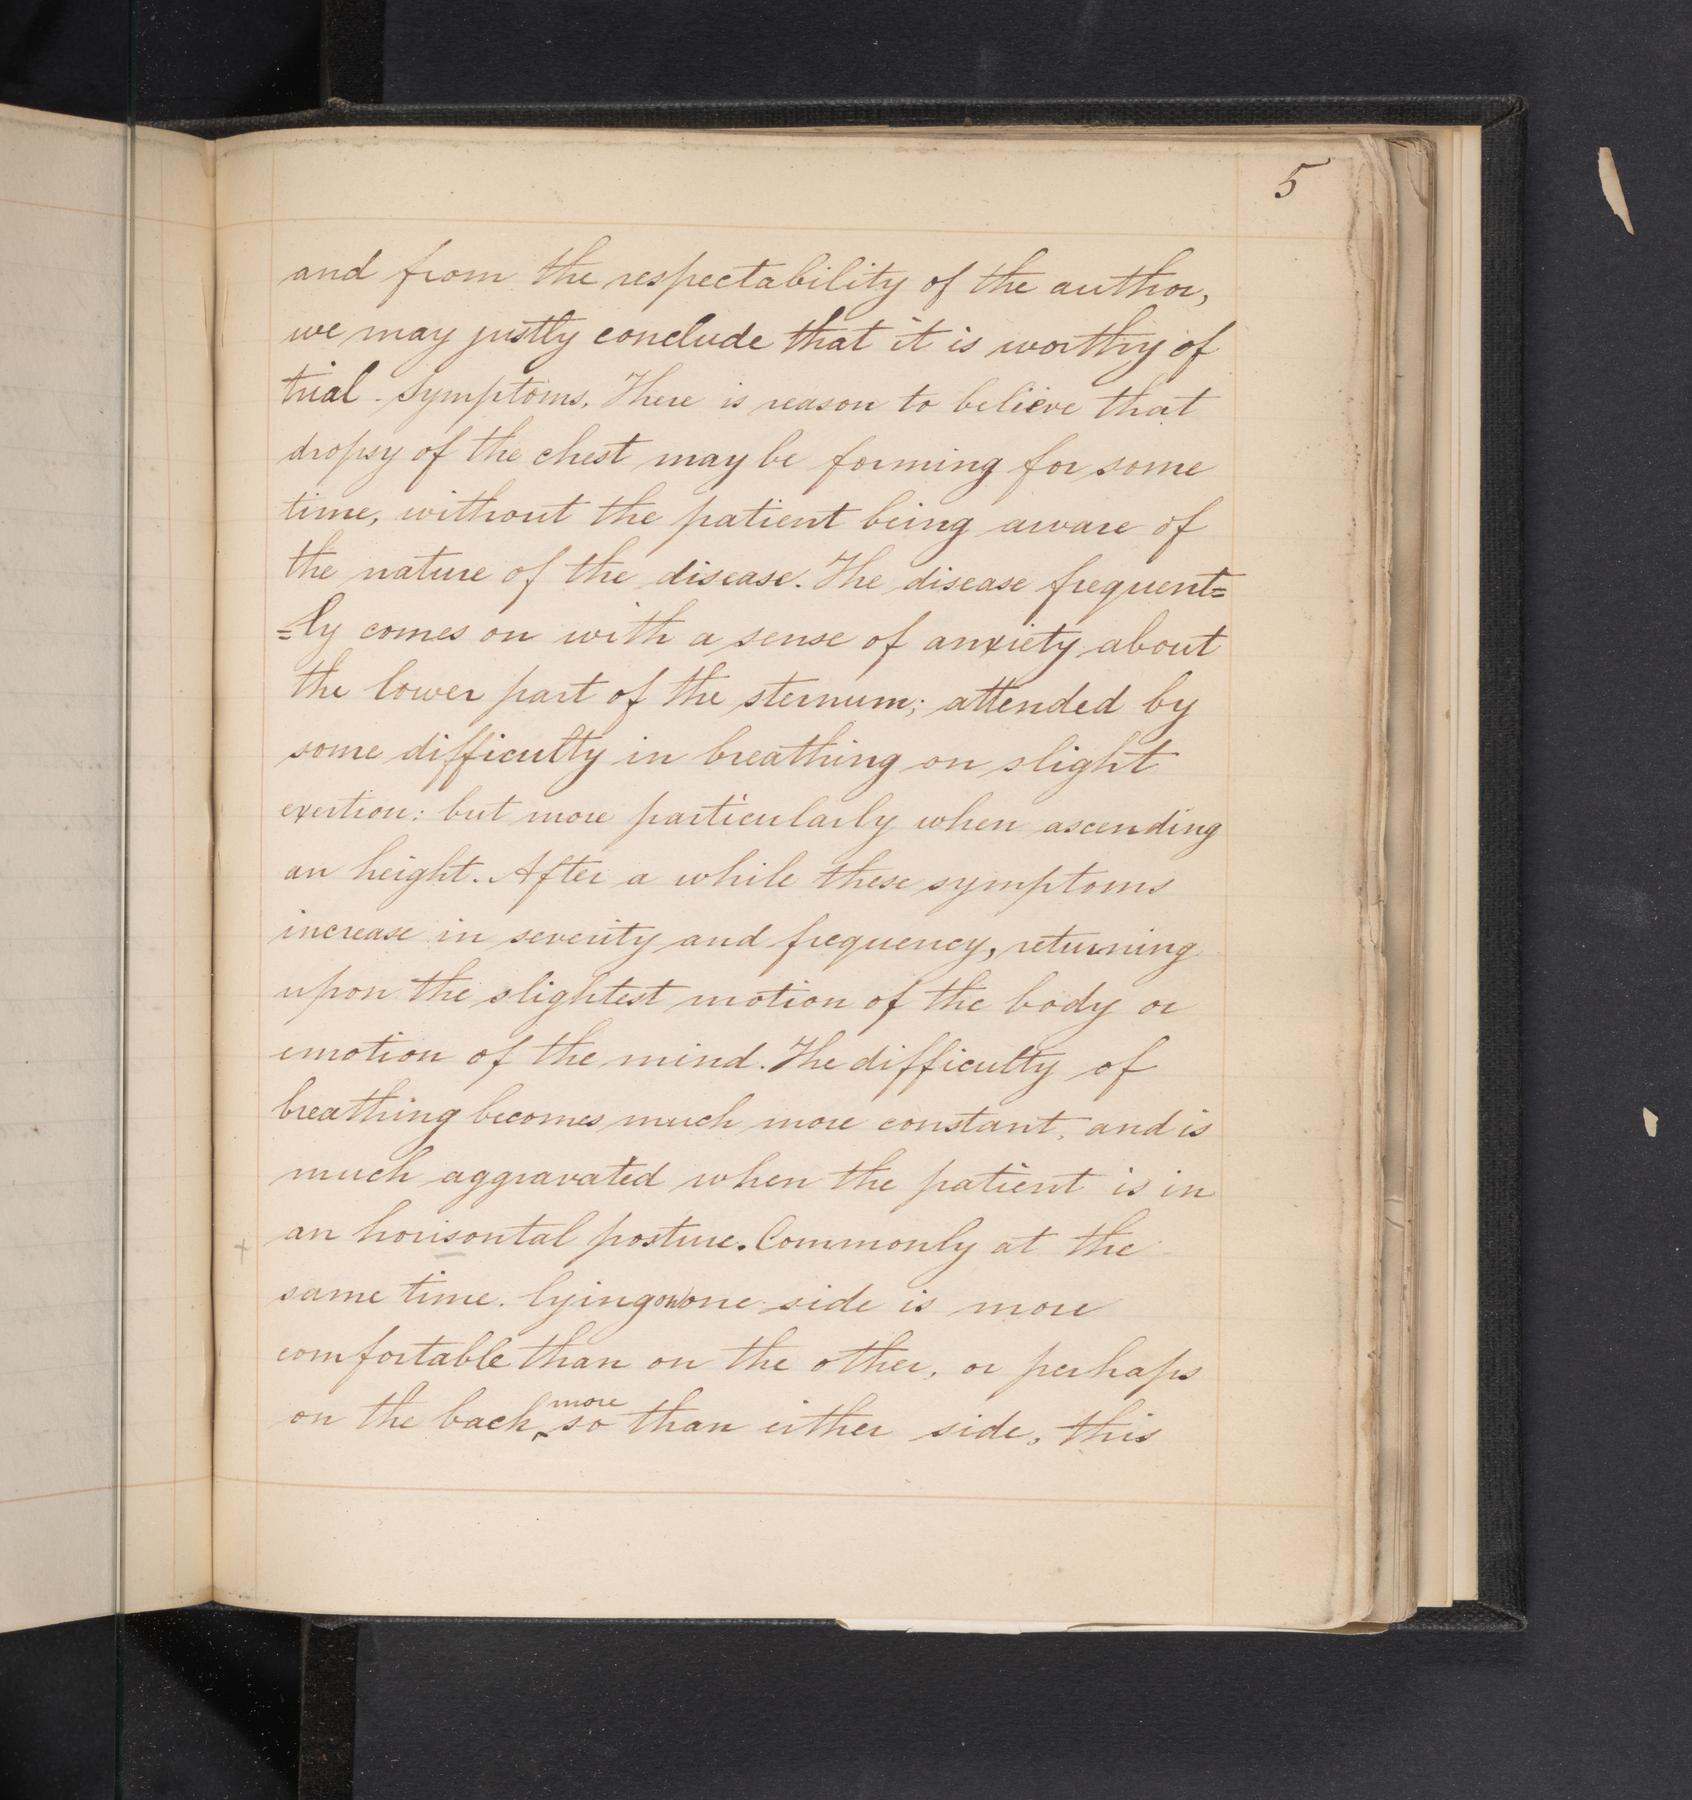 5
and from the respectability of the author,
we may justly conclude that it is worthy of
trial. Symptoms. There is reason to believe that
dropsy of the chest may be forming for some
time, without the patient being aware of
the nature of the disease. The disease frequent=
=ly comes on with a sense of anxiety about
the lower part of the sternum; attended by
some difficulty in breathing on slight
exertion: but more particularly when ascending
an height. After a while these symptoms
increase in severity and frequency, returning
upon the slightest motion of the body or
emotion of the mind. The difficulty of
breathing becomes much more constant, and is
much aggravated when the patient is in
an horisontal posture. Commonly at the
same time. lying on one side is more
comfortable than on the other, or perhaps
on the back more so than either side, this